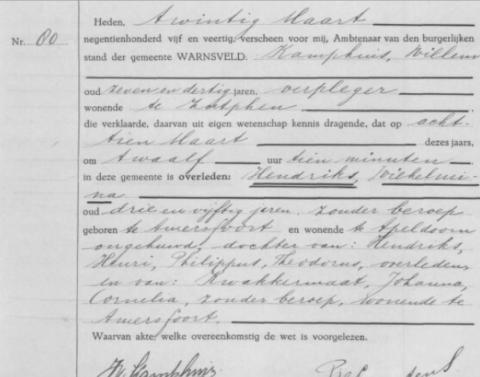 Heden, twintig Maart
Nr. 60 negentienhonderd vijf en veertig, verscheen voor mij, Ambtenaar van den burgerlijken
stand der gemeente WARNSVELD. Kamphuis, Willem
oud zeven en dertig jaren, verpleger
wonende te Zutphen
die verklaarde, daarvan uit eigen wetenschap kennis dragende, dat op acht-
tien Maart dezes jaars,
om twaalf uur tien minuten
in deze gemeente is overleden: Hendriks, Wilhelmi-
na
oud drie en vijftig jaren. zonder beroep
geboren te Amersfoort en wonende te Apeldoorn
ongehuwd, dochter van: Hendriks,
Henri, Philippus, Theodorus, overleden
en van: Kwakkernaat, Johanna,
Cornelia, zonder beroep, wonende te
Amersfoort.
Waarvan akte, welke overeenkomstig de wet is voorgelezen.
W. Kamphuis